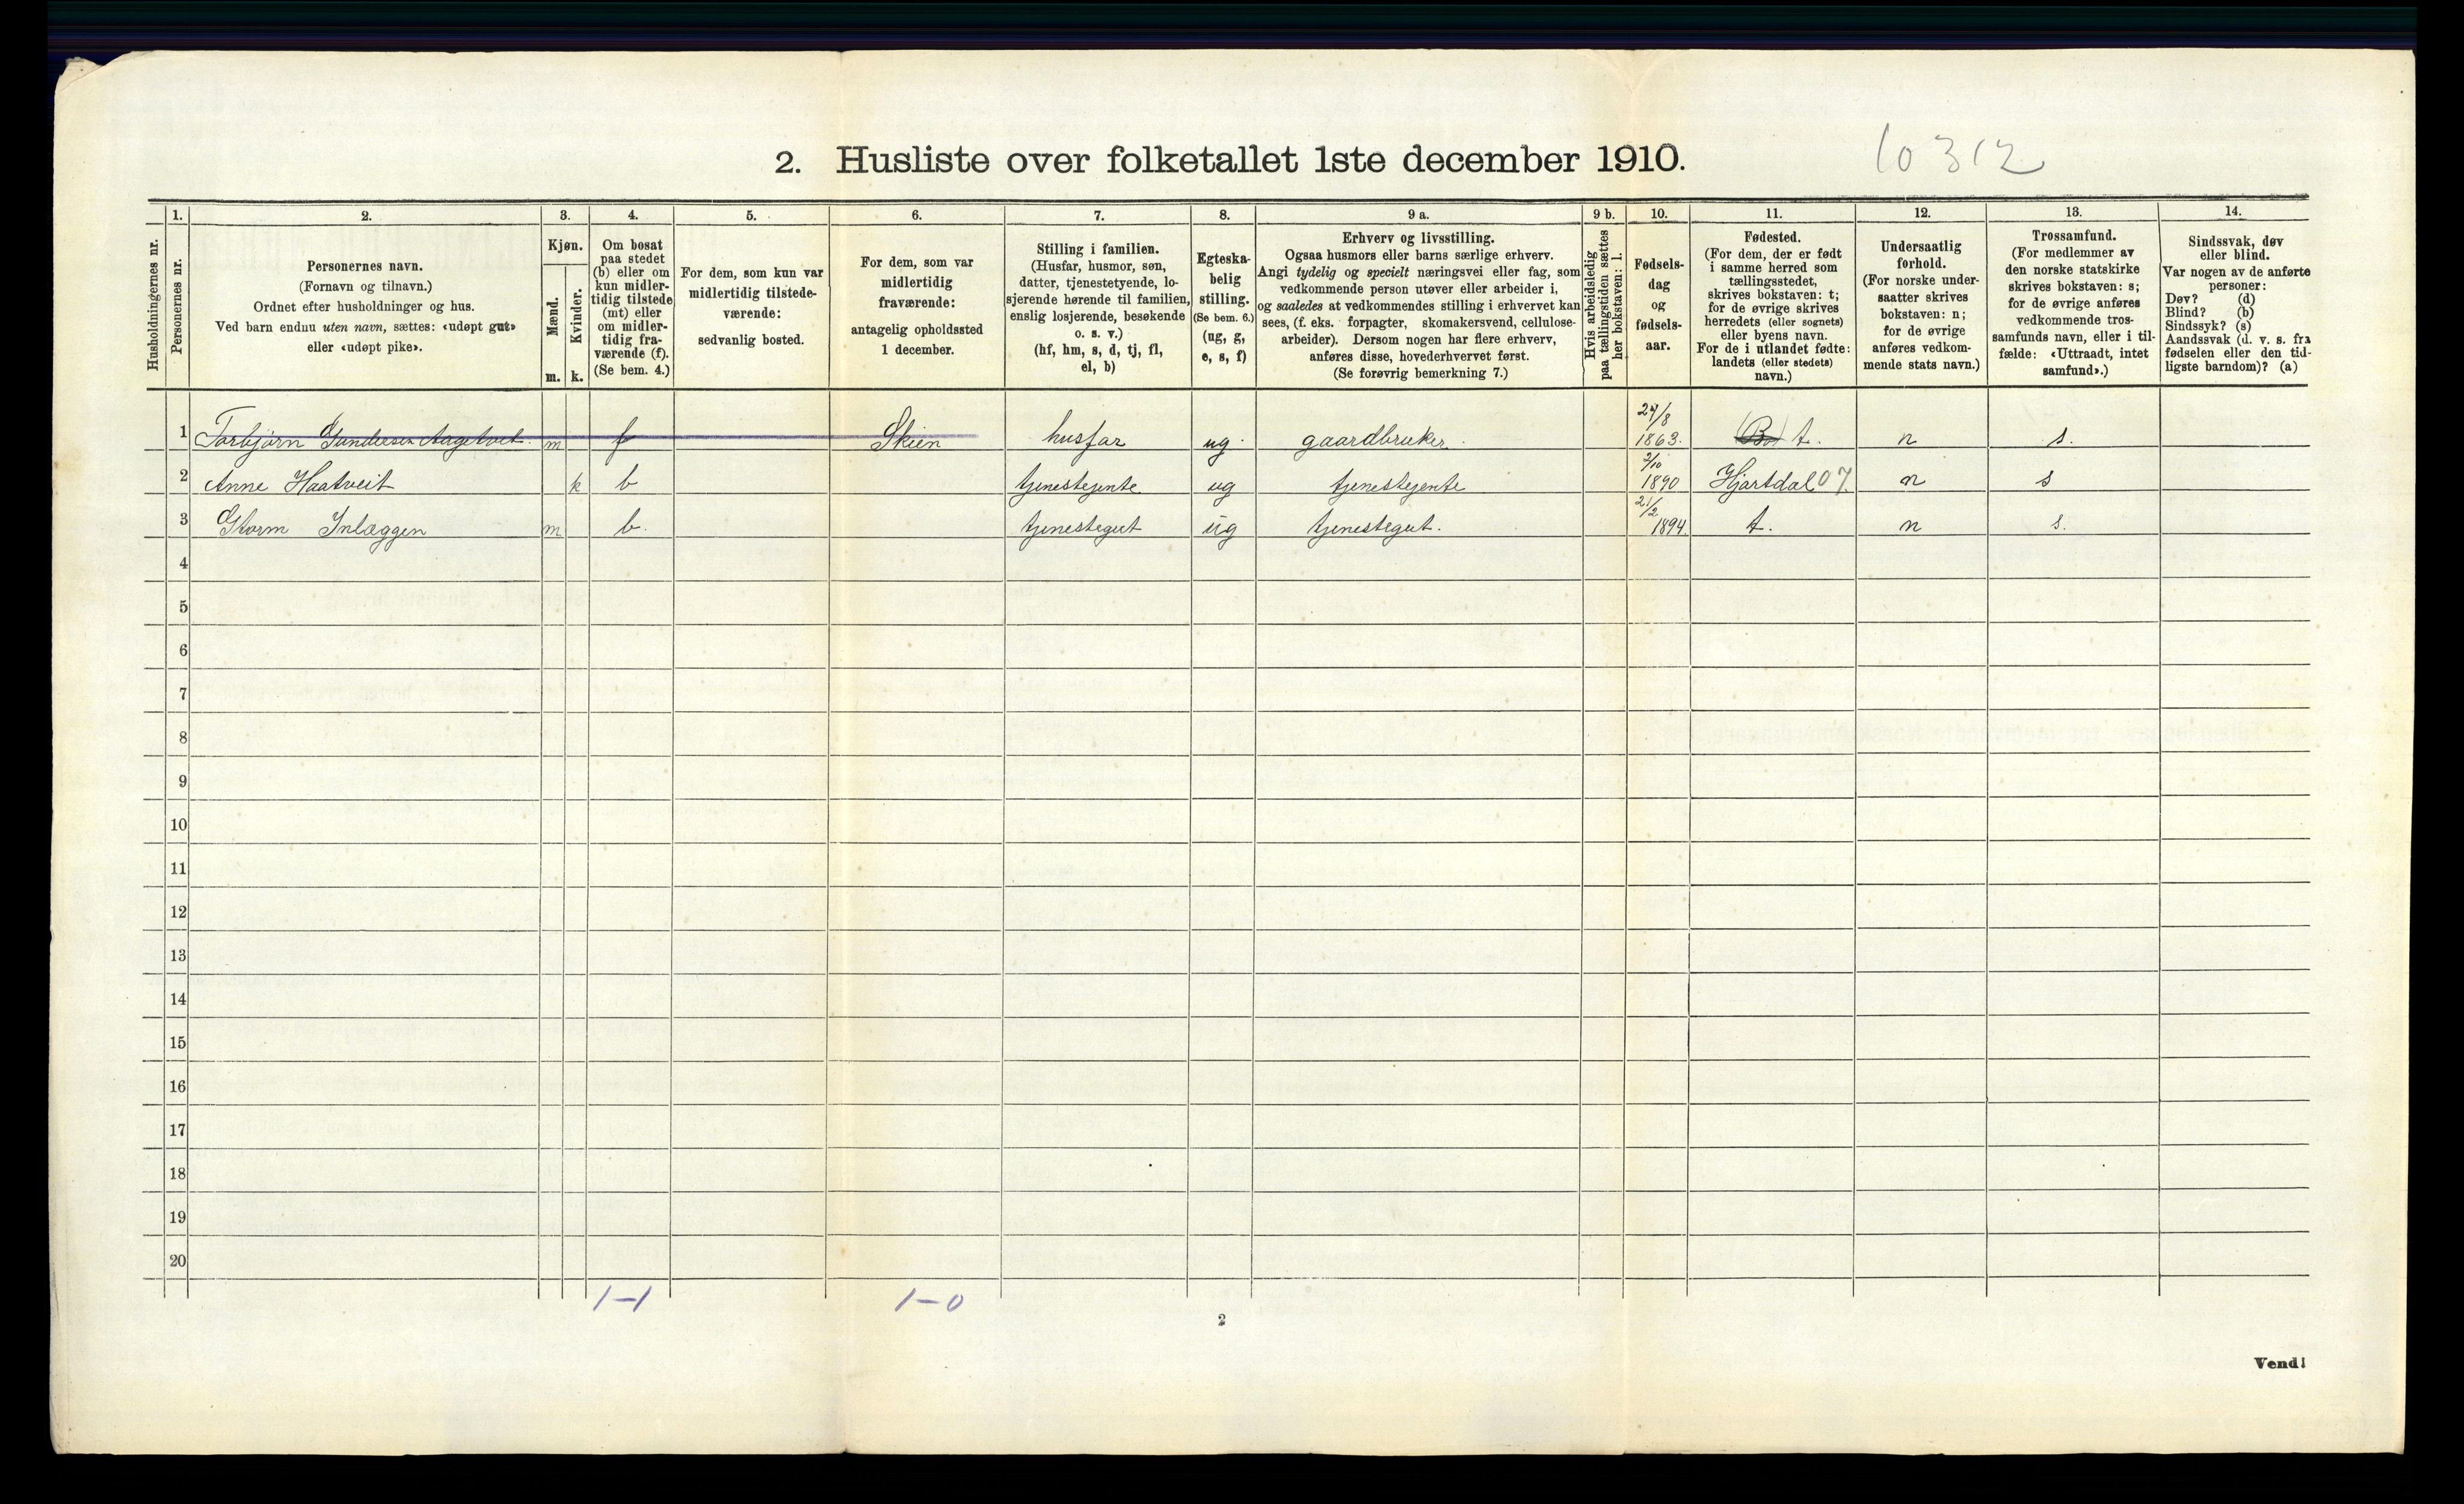 2. Husliste over folketallet 1ste december 1910.
10312
Husholdningernes nr.
1.
Personernes nr.
2.
Personernes navn.
(Fornavn og tilnavn.)
Ordnet efter husholdninger og hus.
Ved barn endnu uten navn, sættes: «udøpt gut»
eller «udøpt pike».
3.
Kjøn.
Mænd.
Kvinder.
m.
k.
4.
Om bosat
paa stedet
(b) eller om
kun midler-
tidig tilstede
(mt) eller
om midler-
tidig fra-
værende (f).
(Se bem. 4.)
5.
For dem, som kun var
midlertidig tilstede-
værende:
sedvanlig bosted.
6.
For dem, som var
midlertidig
fraværende:
antagelig opholdssted
1 december.
7.
Stilling i familien.
(Husfar, husmor, søn,
datter, tjenestetyende, lo-
sjerende hørende til familien,
enslig losjerende, besøkende
o. s. v.)
(hf, hm, s, d, tj, fl,
el, b)
8.
Egteska-
belig
stilling.
(Se bem. 6.)
(ug, g,
e, s, f)
9 a.
Erhverv og livsstilling.
Ogsaa husmors eller barns særlige erhverv.
Angi tydelig og specielt næringsvei eller fag, som
vedkommende person utøver eller arbeider i,
og saaledes at vedkommendes stilling i erhvervet kan
sees, (f. eks. forpagter, skomakersvend, cellulose-
arbeider). Dersom nogen har flere erhverv,
anføres disse, hovederhvervet først.
(Se forøvrig bemerkning 7.)
9 b.
Hvis arbeidsledig
paa tællingstiden sættes
her bokstaven: l.
10.
Fødsels-
dag
og
fødsels-
aar.
11.
Fødested.
(For dem, der er født
i samme herred som
tællingsstedet,
skrives bokstaven: t;
for de øvrige skrives
herredets (eller sognets)
eller byens navn.
For de i utlandet fødte:
landets (eller stedets)
navn.)
12.
Undersaatlig
forhold.
(For norske under-
saatter skrives
bokstaven: n;
for de øvrige
anføres vedkom-
mende stats navn.)
13.
Trossamfund.
(For medlemmer av
den norske statskirke
skrives bokstaven: s;
for de øvrige anføres
vedkommende tros-
samfunds navn, eller i til-
fælde: «Uttraadt, intet
samfund».)
14.
Sindssvak, døv
eller blind.
Var nogen av de anførte
personer:
Døv? (d)
Blind? (b)
Sindssyk? (s)
Aandssvak (d. v. s. fra
fødselen eller den tid-
ligste barndom)? (a)
1 Torbjörn Gundersen Aagetveit. m f Skien husfar ug. gaardbruker. 24/8 1863. (Bø) t. n s.
2 Anne Haatveit k b tjenestejente ug tjenestejente 2/10 1890 Hjartdal 07. n s
3 Storm Inlæggen m b. tjenestegut ug tjenestegut. 21/2 1894. t. n s.
4
5
6
7
8
9
10
11
12
13
14
15
16
17
18
19
20
1–1 1–0
2
Vend!